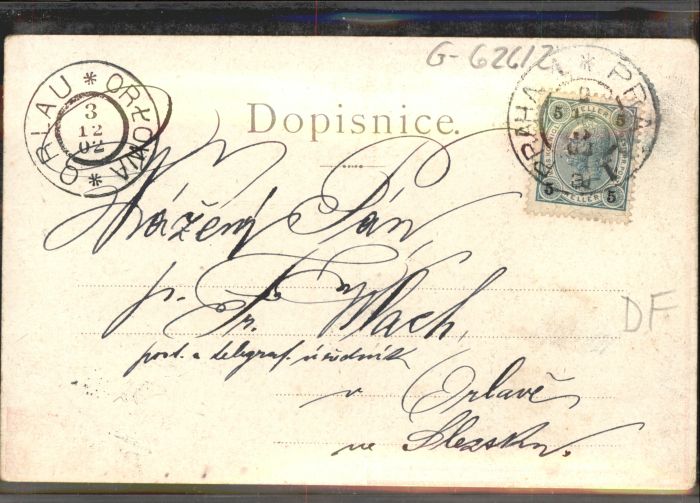 G-62612
ORLAU * ORŁOWA *
3
12
02
Dopisnice.
PRAHA 1 * PRAHA 1
5 5
HELLER
5 5
Vážený Pán,
p.
Fr. Wlach,
post. a telegraf. úředník
v Orlavě
ve Slezsku.
D.F.